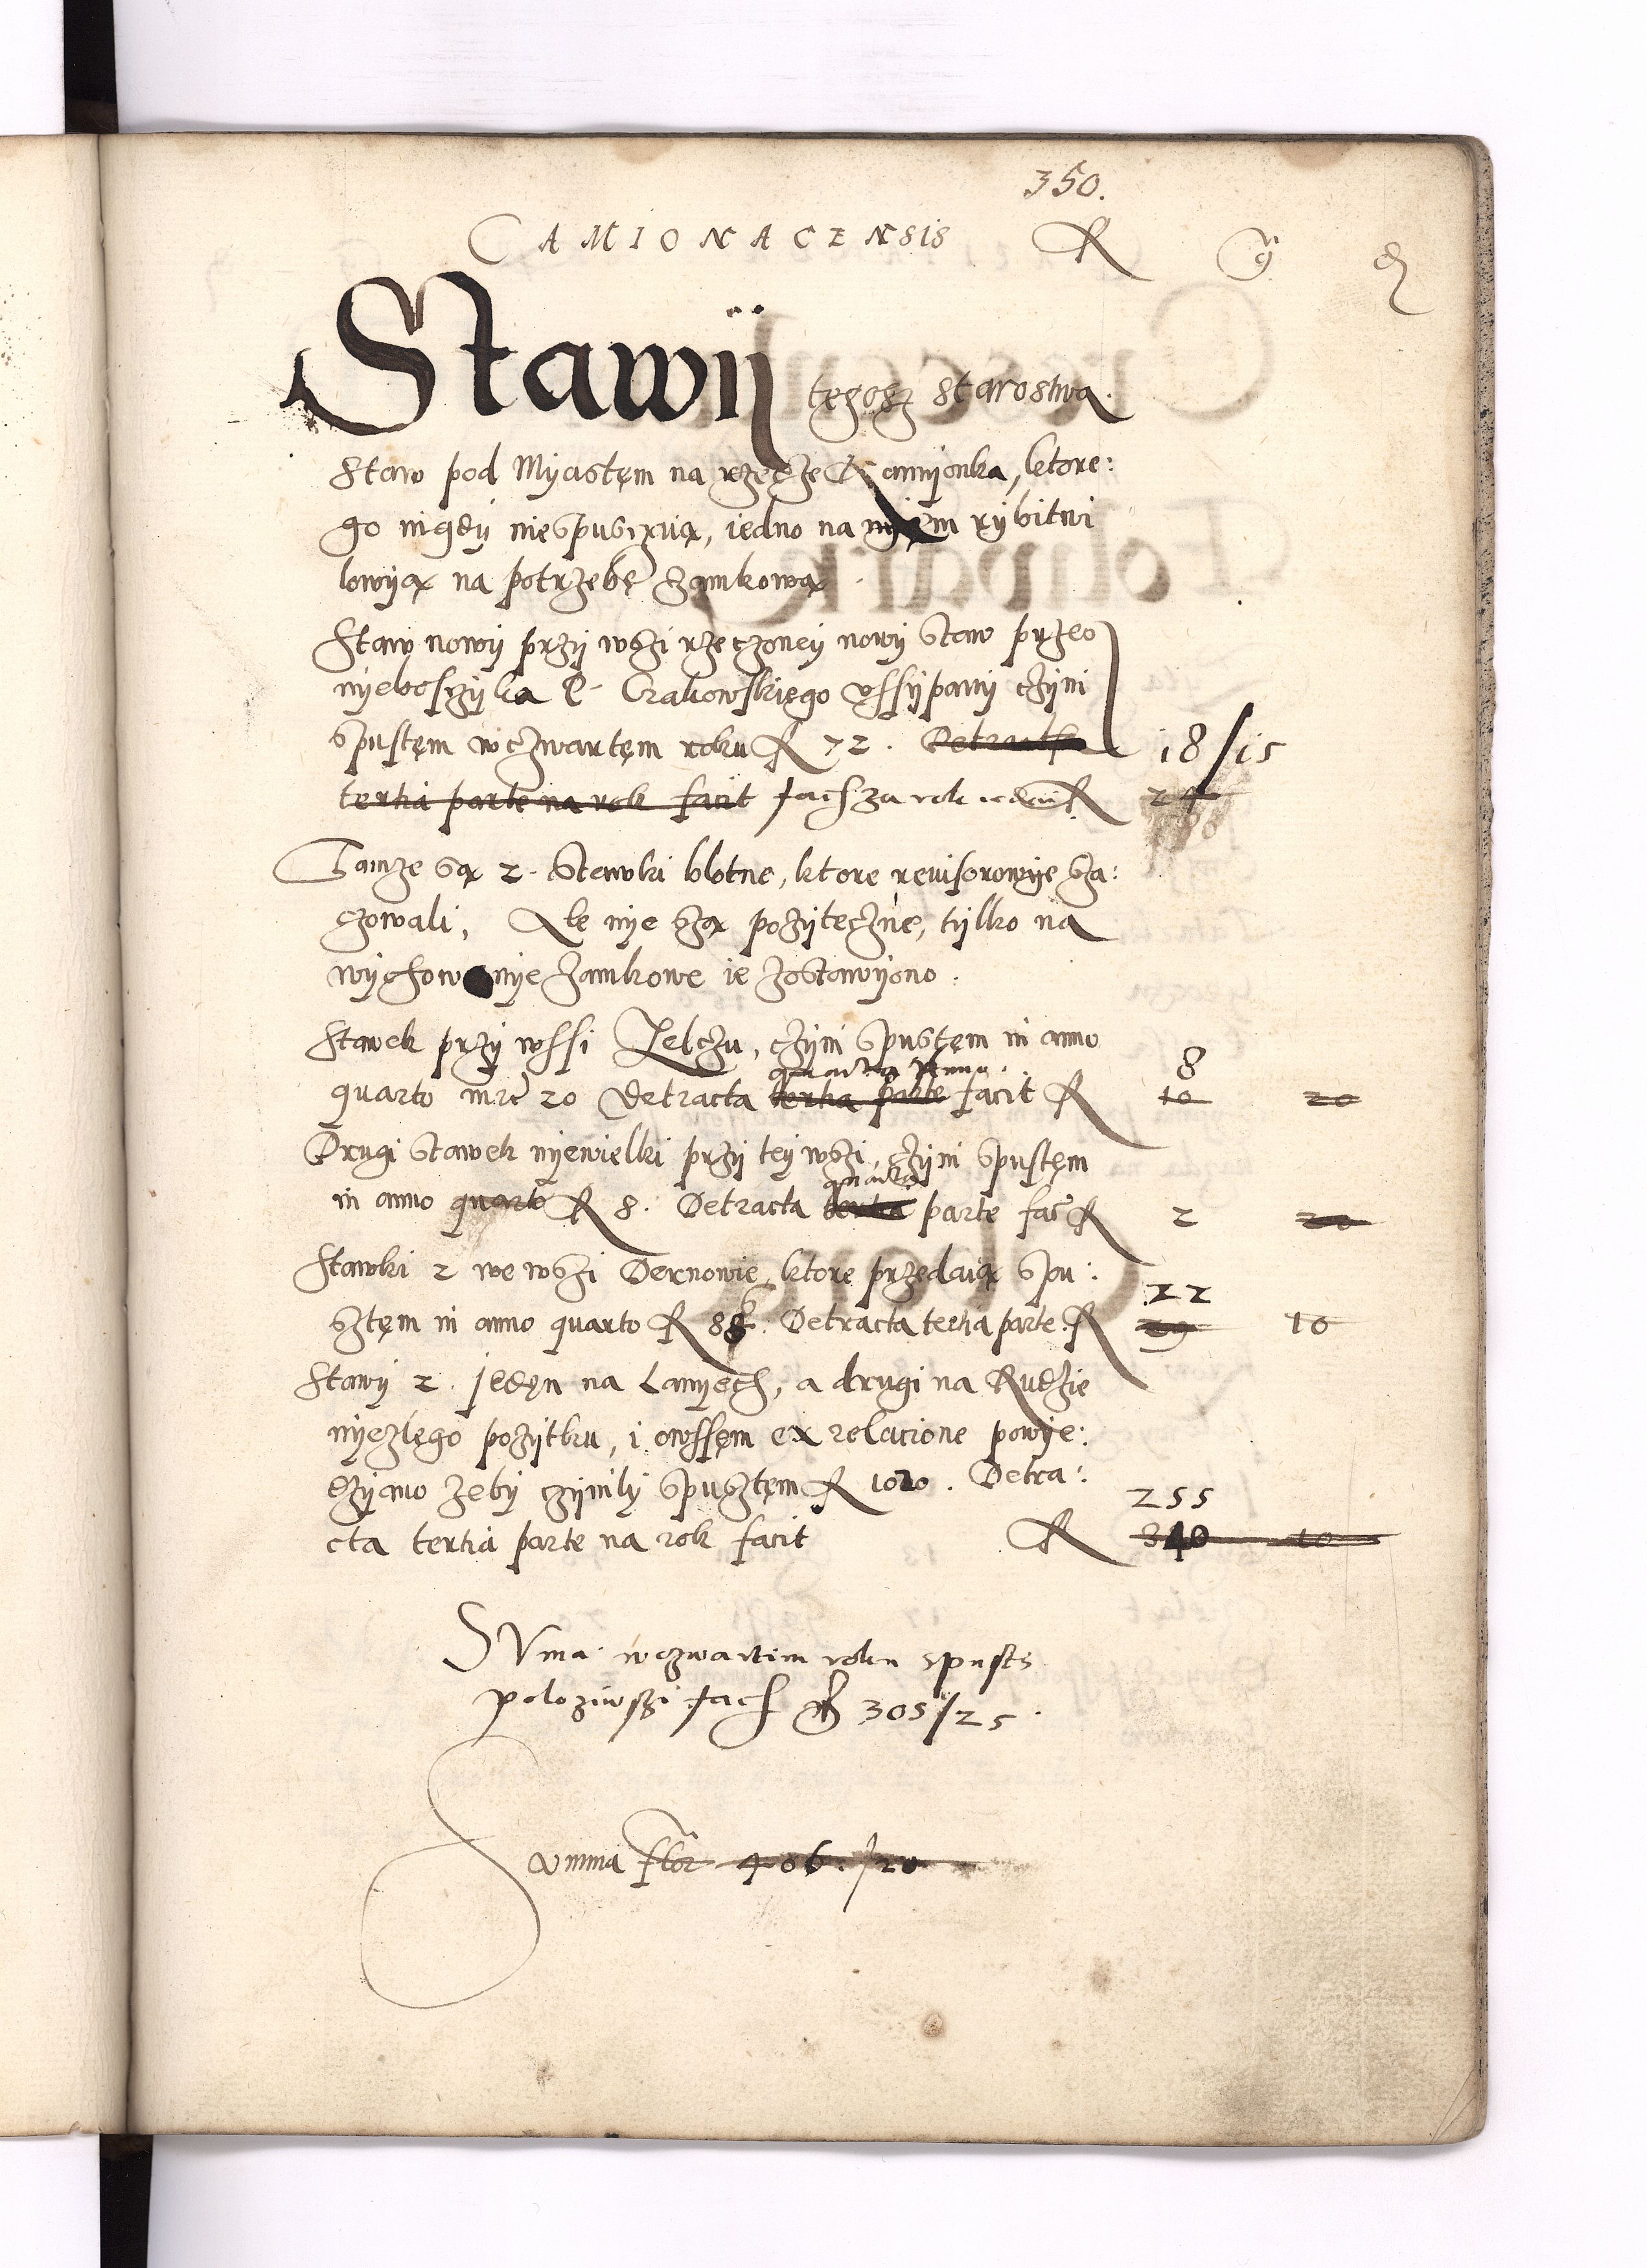 350.
CAMIONACENSIS R g
Stawÿ tegosz starostwa.
Staw pod Myastem na rzecze Camÿonka, ktore:
go nigdÿ niespusczuią, iedno na nyem rÿbitwi
lowÿą na potrzebę zamkową
Staw nowÿ przÿ wszi rzeczoneÿ nowÿ staw przeo
nÿeboszczÿka P. Crakowskiego vssÿpanÿ czÿni
spustem w czwartem roku R 72. Detracta 18/15
tertia parte na rok facit fach za rok R 24
Tamze są 2. Stawki blotne, ktore reuisorowye sza:
czowali, Ale nye szą pozÿteczne, tÿlko na
wÿchowanye zamkowe ie zostawÿono.
Stawek przÿ wssi Zelczu, czÿni spustem in anno
quarta 8
quarto mrc 20 Detracta tertia parte facit R 10 20
Drugi stawek nyewielki przÿ teÿ wszi, czÿni spustem
quarta
in anno quarto R 8. Detracta tertia parte fac R 2 20
Stawki 2 we wszi Dernowie, ktore przedaią spu:
22
sztem in anno quarto R 88. Detracta tertia parte. R 29 10
Stawÿ 2. jeden na Lanÿech, a drugi na Rudzie
nyezlego pozÿtku, i owssem ex relacione powye:
dzÿano zebÿ czÿnilÿ spusztem R 1020. Detra:
255
cta tertia parte na rok facit R 340 10
SVma wczwartim roku spusts
poloziwszi fach fl 305/25.
Summa flor 406./20